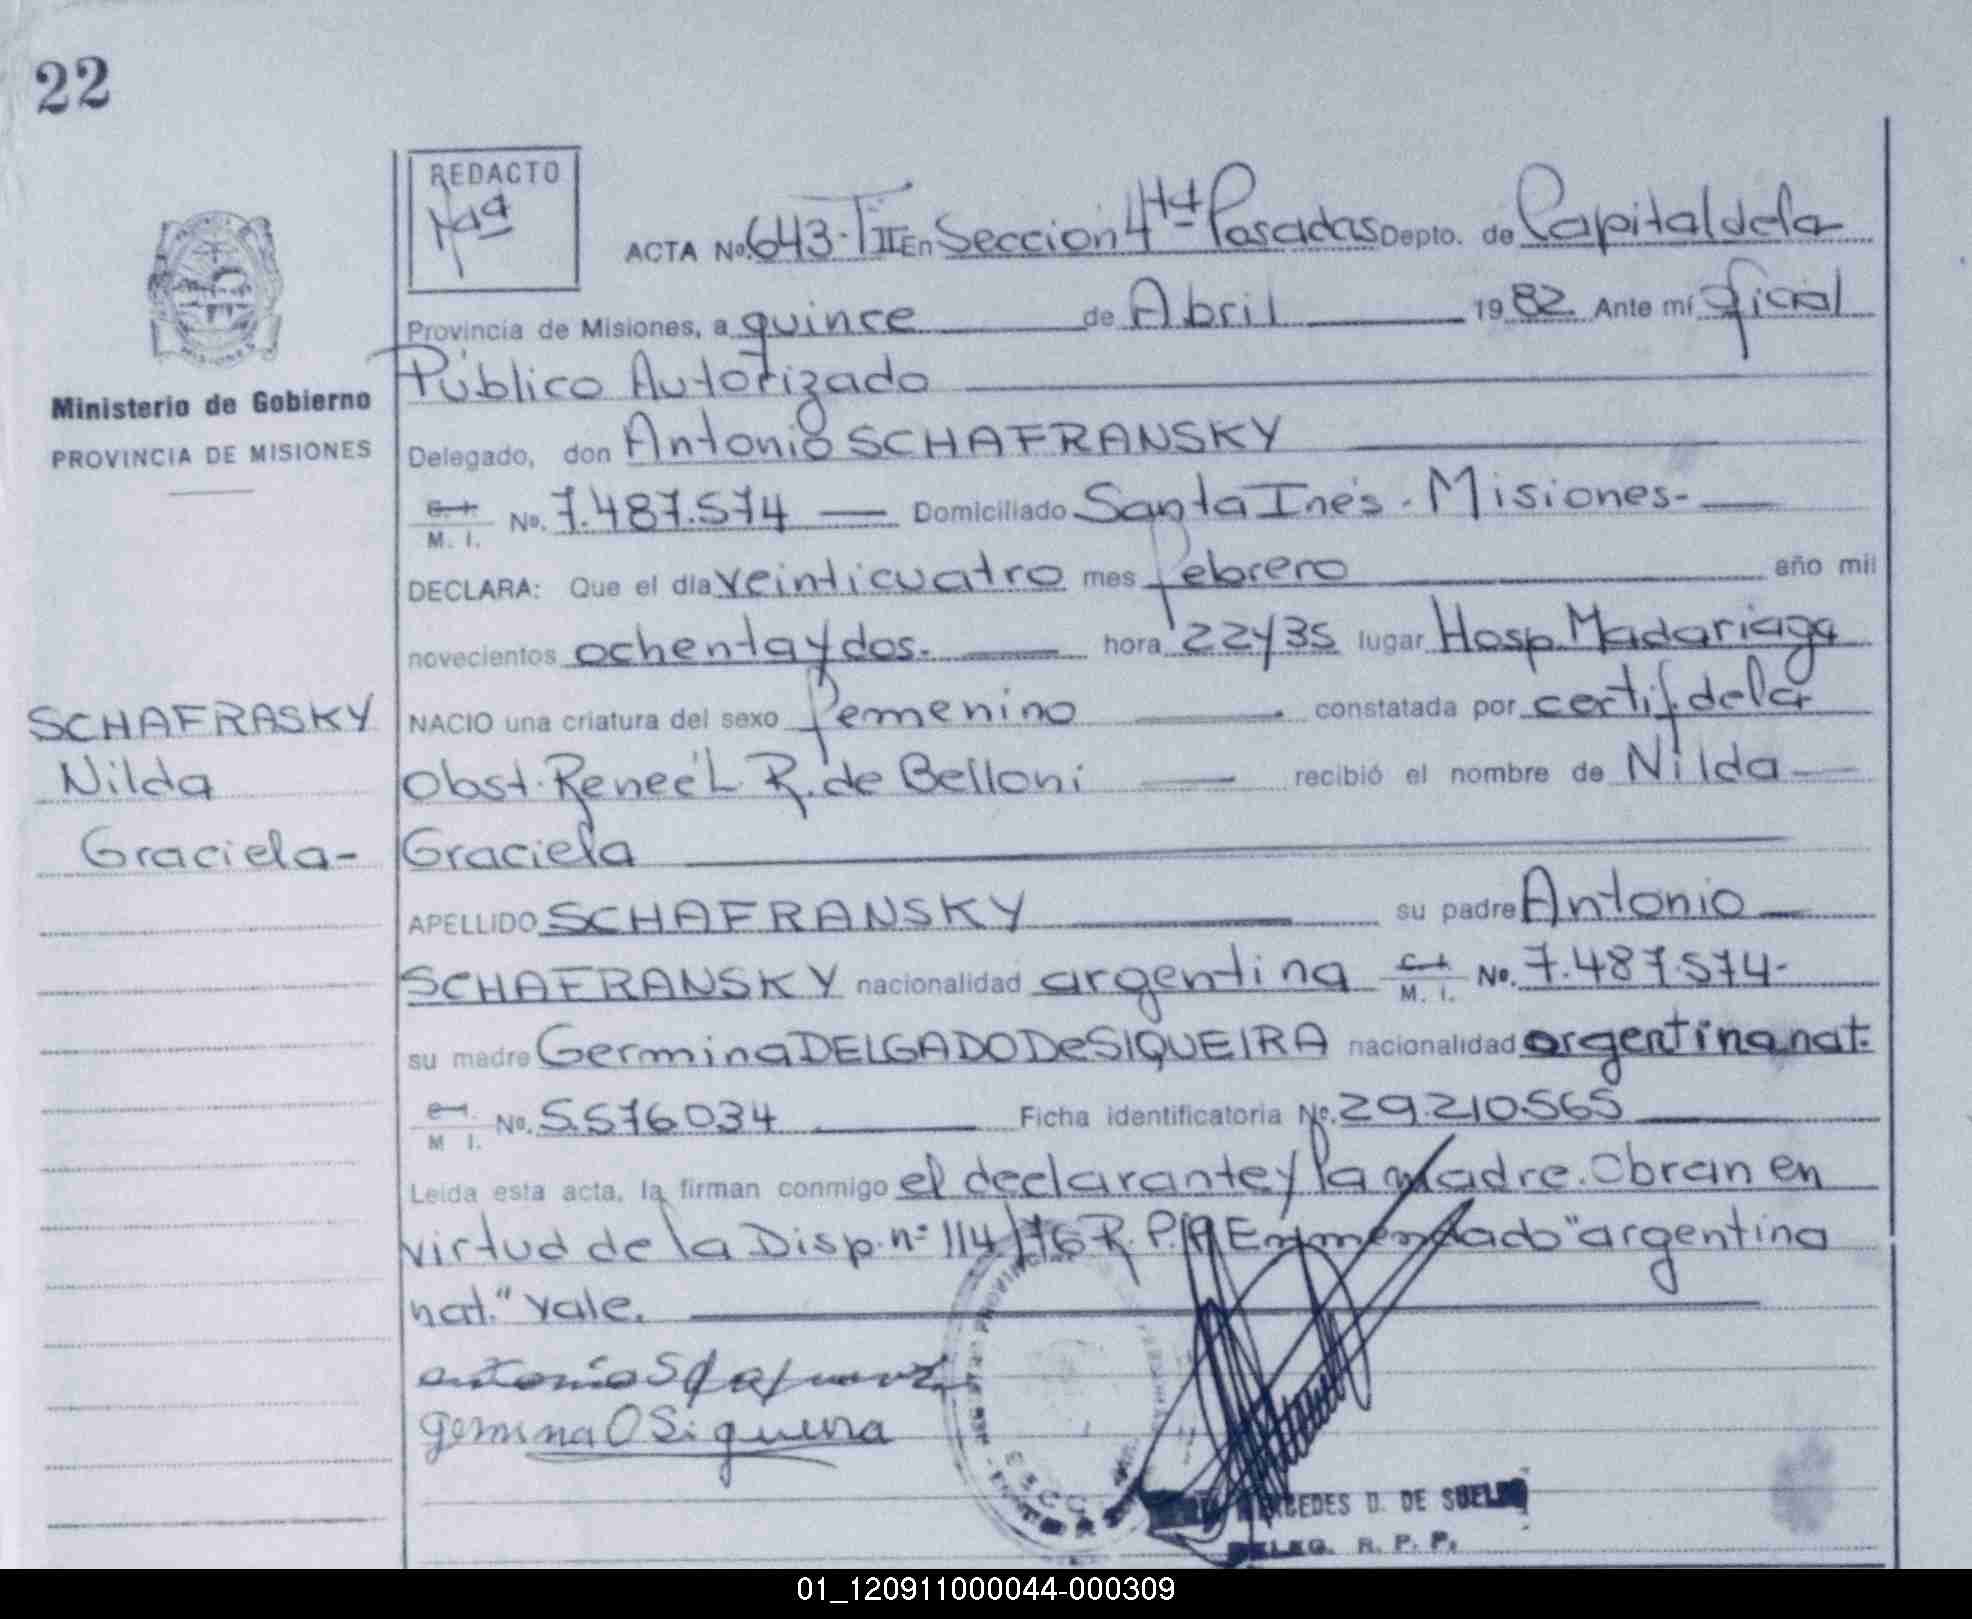 22
REDACTO
ACTA No. 643-TII En Sección 4ta Posadas Depto. de Capital de la
Provincia de Misiones, a quince de Abril 1982. Ante mí Oficial
Público Autorizado
Ministerio de Gobierno
PROVINCIA DE MISIONES
MISIONES
Delegado, don Antonio SCHAFRANSKY
C.I. M. I. No. 7.487.574 Domiciliado Santa Inés - Misiones-
DECLARA: Que el día veinticuatro mes febrero año mil
novecientos ochenta y dos. hora 22y35 lugar Hosp. Madariaga
NACIO una criatura del sexo femenino constatada por certif. de la
Obst. Reneé L. R. de Belloni recibió el nombre de Nilda
Graciela
SCHAFRASKY
Nilda
Graciela-
APELLIDO SCHAFRANSKY su padre Antonio
SCHAFRANSKY nacionalidad argentina C.I. M. I. No. 7.487.574-
su madre Germina DELGADO De SIQUEIRA nacionalidad argentina nat.
M I. No. 5.576.034 Ficha identificatoria No. 29.210.565
Leída esta acta, la firman conmigo el declarante y la madre. Obran en
virtud de la Disp. nº 114/76 R. P. Enmendado "argentina
nat." vale.
antonio
germina O Siqueira
DE
DELEG. R. P. P.
01_120911000044-000309